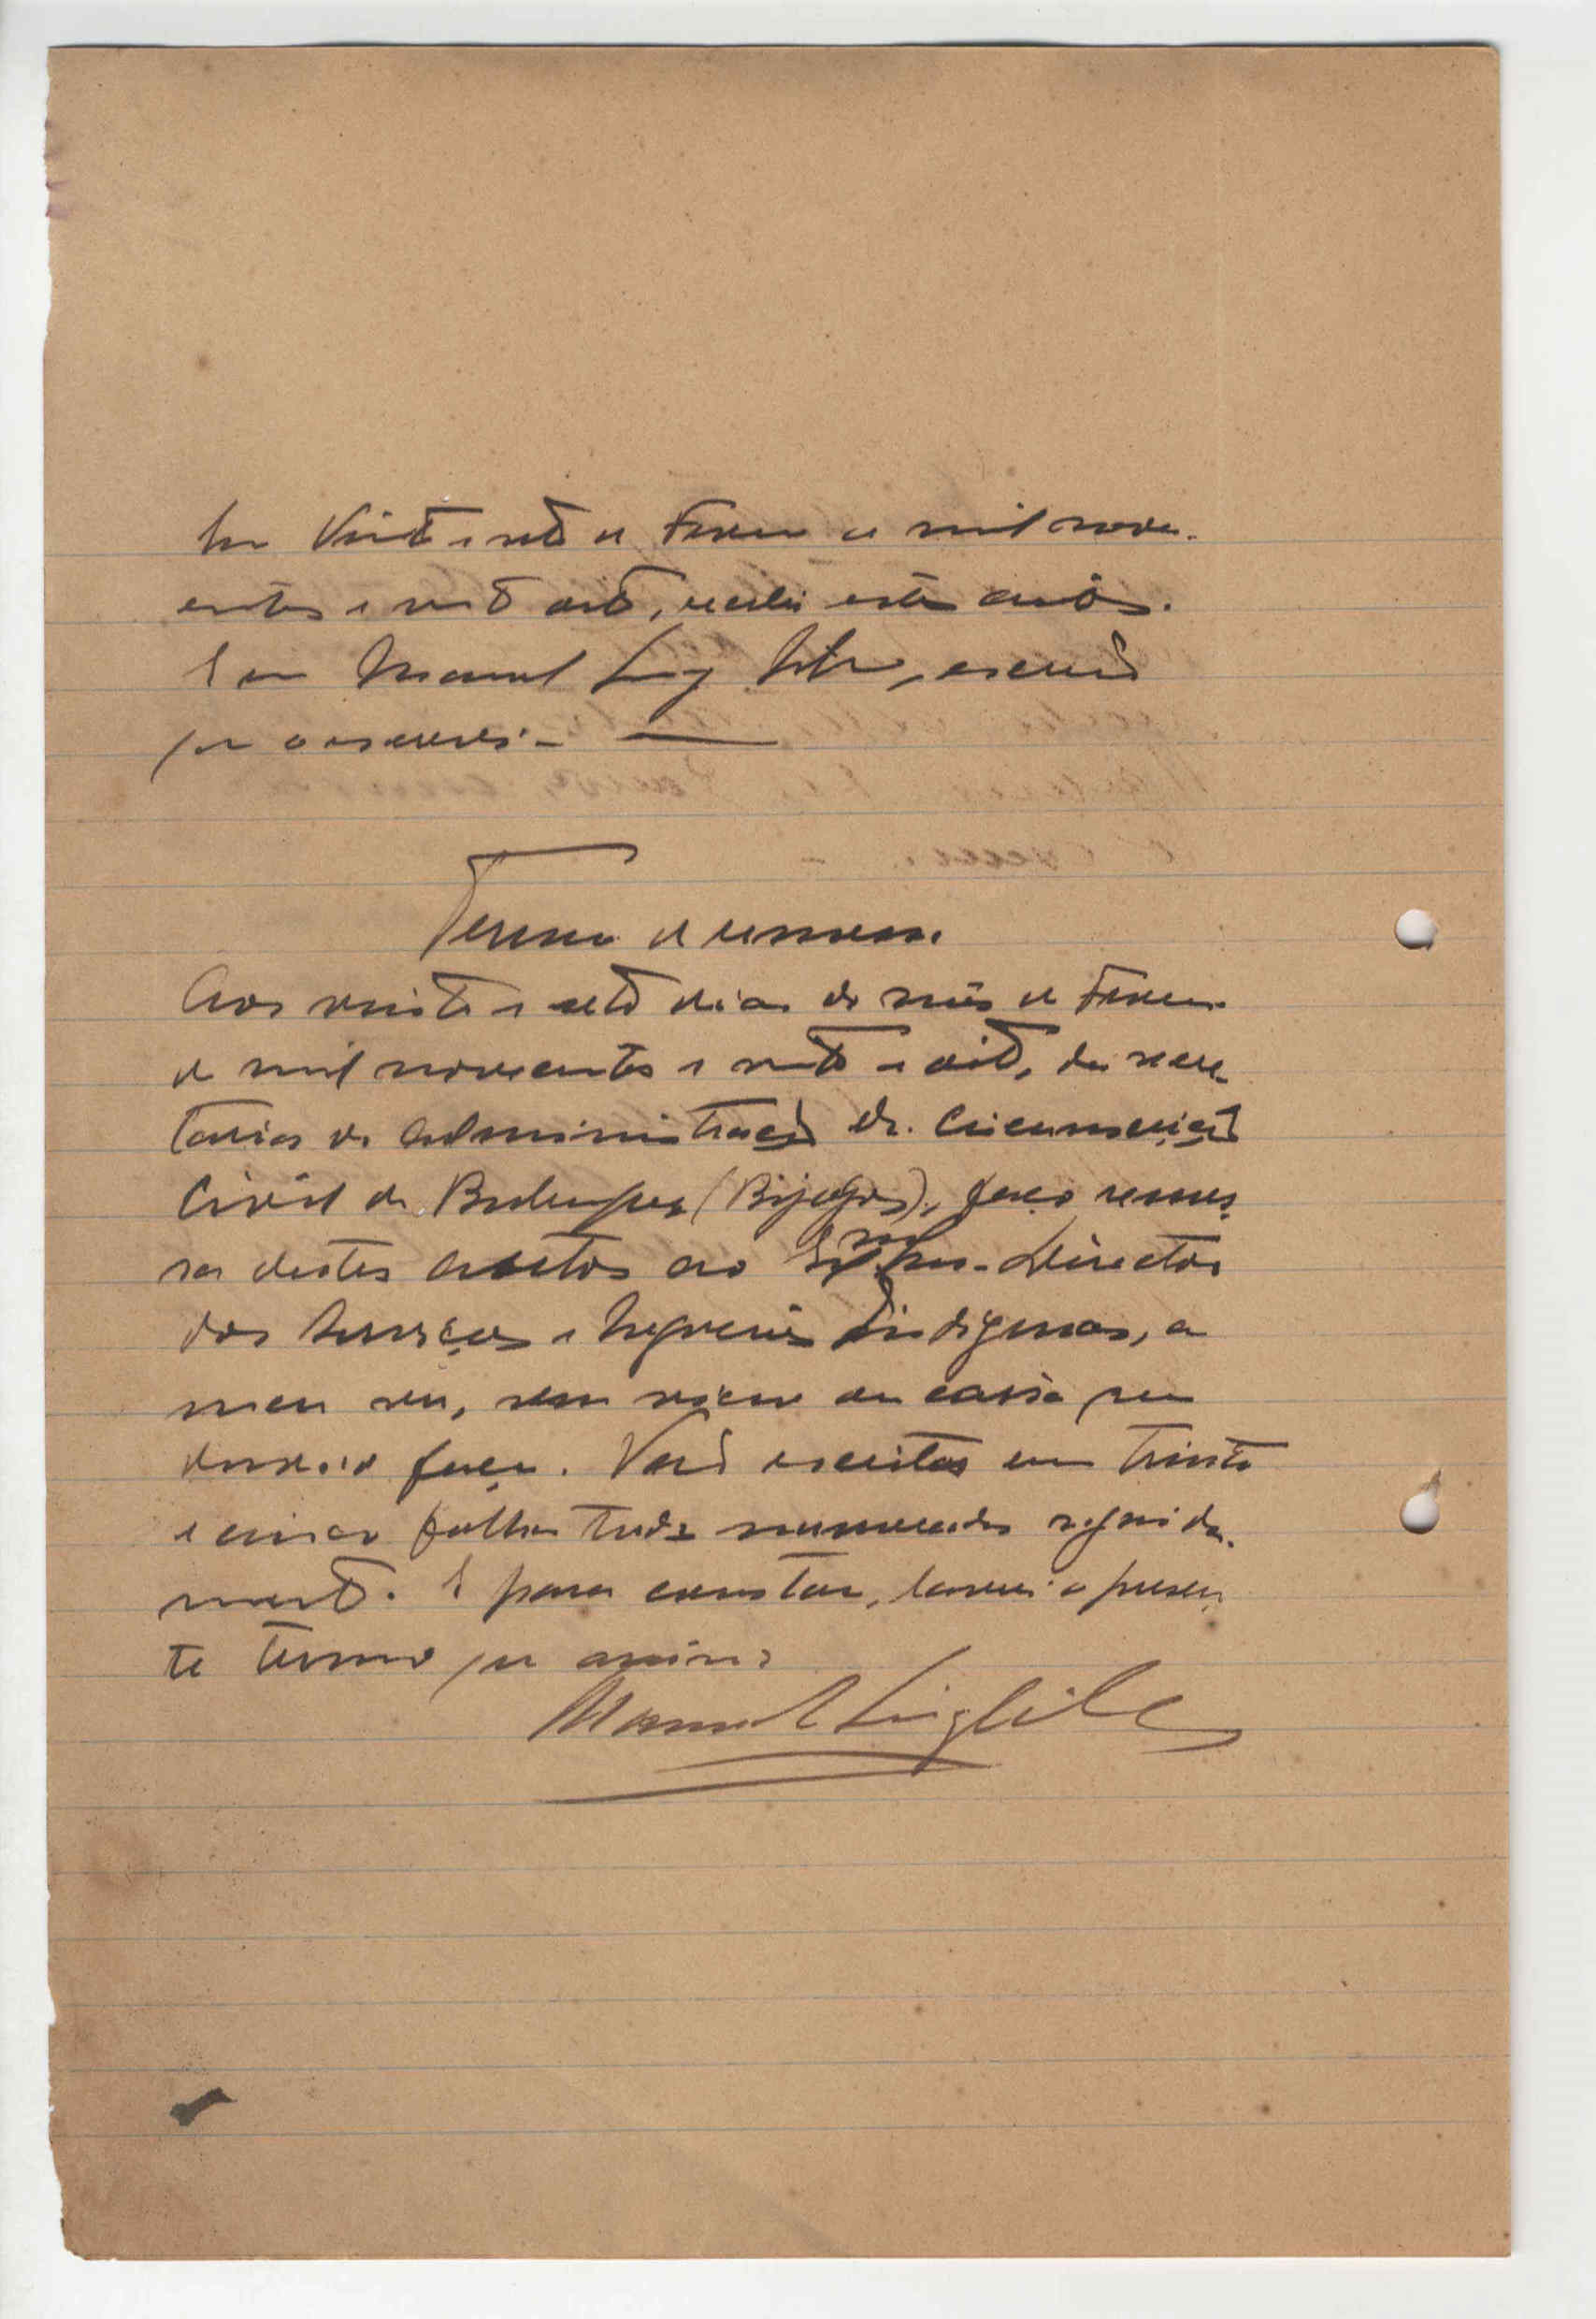 Em Vinte e sete de Fever.º de mil nove-
centos e vinte oito, recebi estes autos.
E eu Manuel Luiz, escrivão
que o escrevi.-
Termo de remessa.
Aos vinte e sete dias do mês de Fever.º
de mil novecentos e vinte e oito, da secre-
taria da Administração da Circunscrição
Civil de (Bijagós), faço remes-
sa destes autos ao Exmo. Snr. Director
dos Serviços e Negocios Indigenas, a
meu ver, sem vicio ou cousa que
duvida faça. Vão escritos em trinta
e cinco folhas todas numeradas seguida-
mente. E para constar, lavrei o presen-
te termo que assino
Manuel Luiz